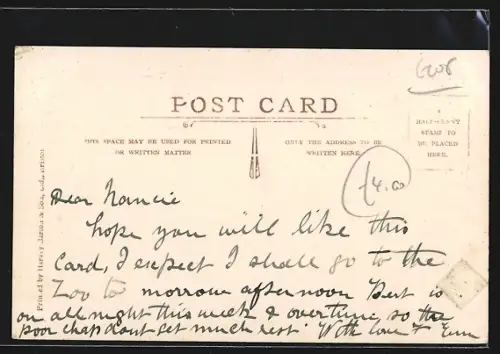 6208
POST CARD
THIS SPACE MAY BE USED FOR PRINTED
OR WRITTEN MATTER
ONLY THE ADDRESS TO BE
WRITTEN HERE.
A
HALF-PENNY
STAMP TO
BE PLACED
HERE.
£4.00
Printed by Harvey Barton & Son, Ltd., Bristol
Dear Nancie
hope you will like this
Card, I expect I shall go to the
Zoo to morrow afternoon Bert is
on all night this week & overtime, so the
poor chap dont get much rest. With love F